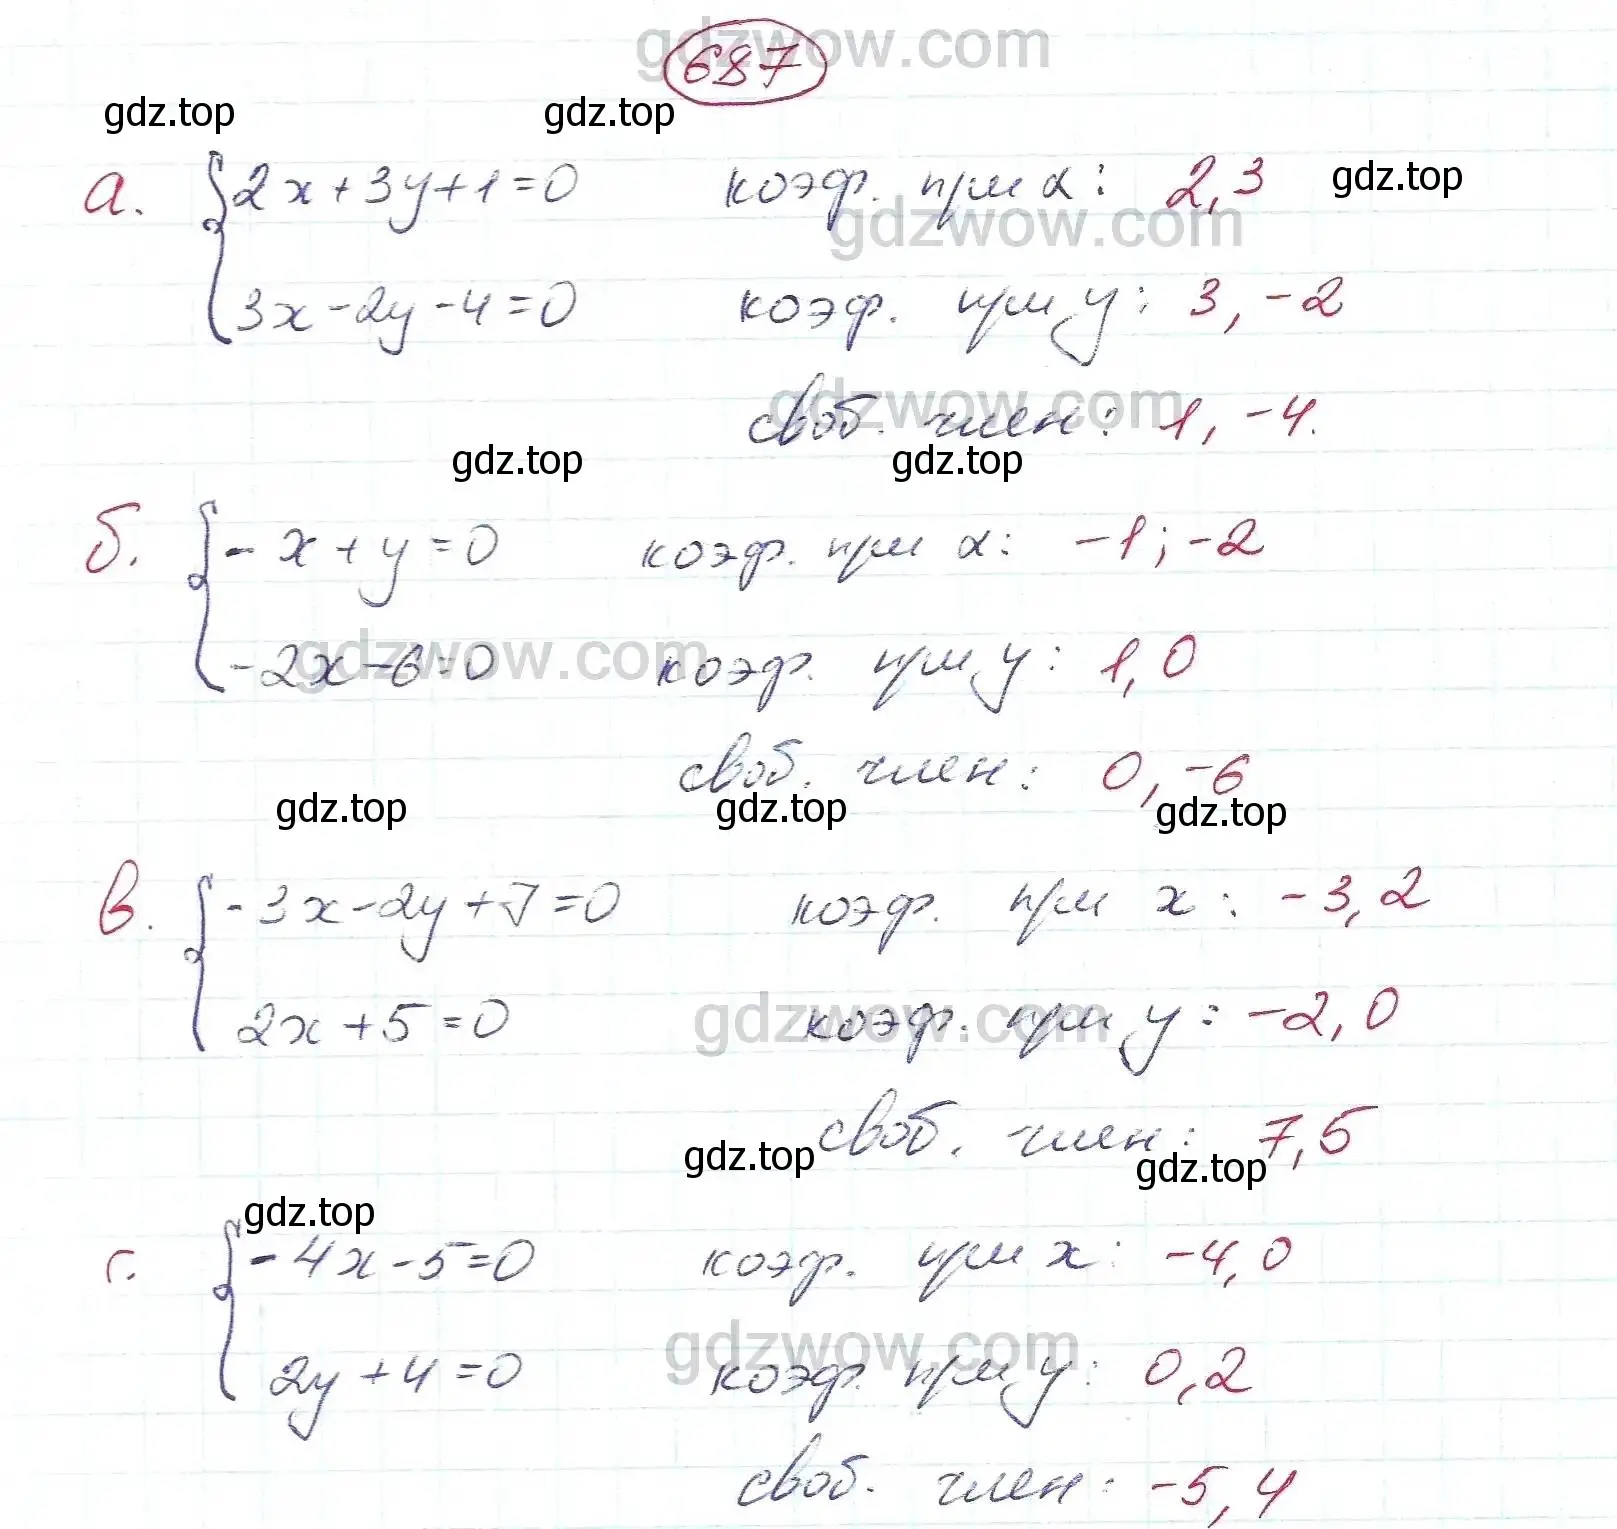 gdzwow.com
687
gdz.top gdz.top
а. {2x+3y+1=0 коэф. при x: 2,3 gdz.top
gdzwow.com
3x-2y-4=0 коэф. при y: 3,-2
gdzwow.com
своб. член: 1,-4.
gdz.top gdz.top
б. {-x+y=0 коэф. при x: -1;-2
gdzwow.com
-2x-6=0 коэф. при y: 1,0
своб. член: 0,-6
gdz.top gdz.top gdz.top
в. {-3x-2y+7=0 коэф. при x: -3,2
gdzwow.com
2x+5=0 коэф. при y: -2,0
своб. член: 7,5
gdz.top gdz.top
gdz.top
г. {-4x-5=0 коэф. при x: -4,0
gdzwow.com
2y+4=0 коэф. при y: 0,2
своб. член: -5,4